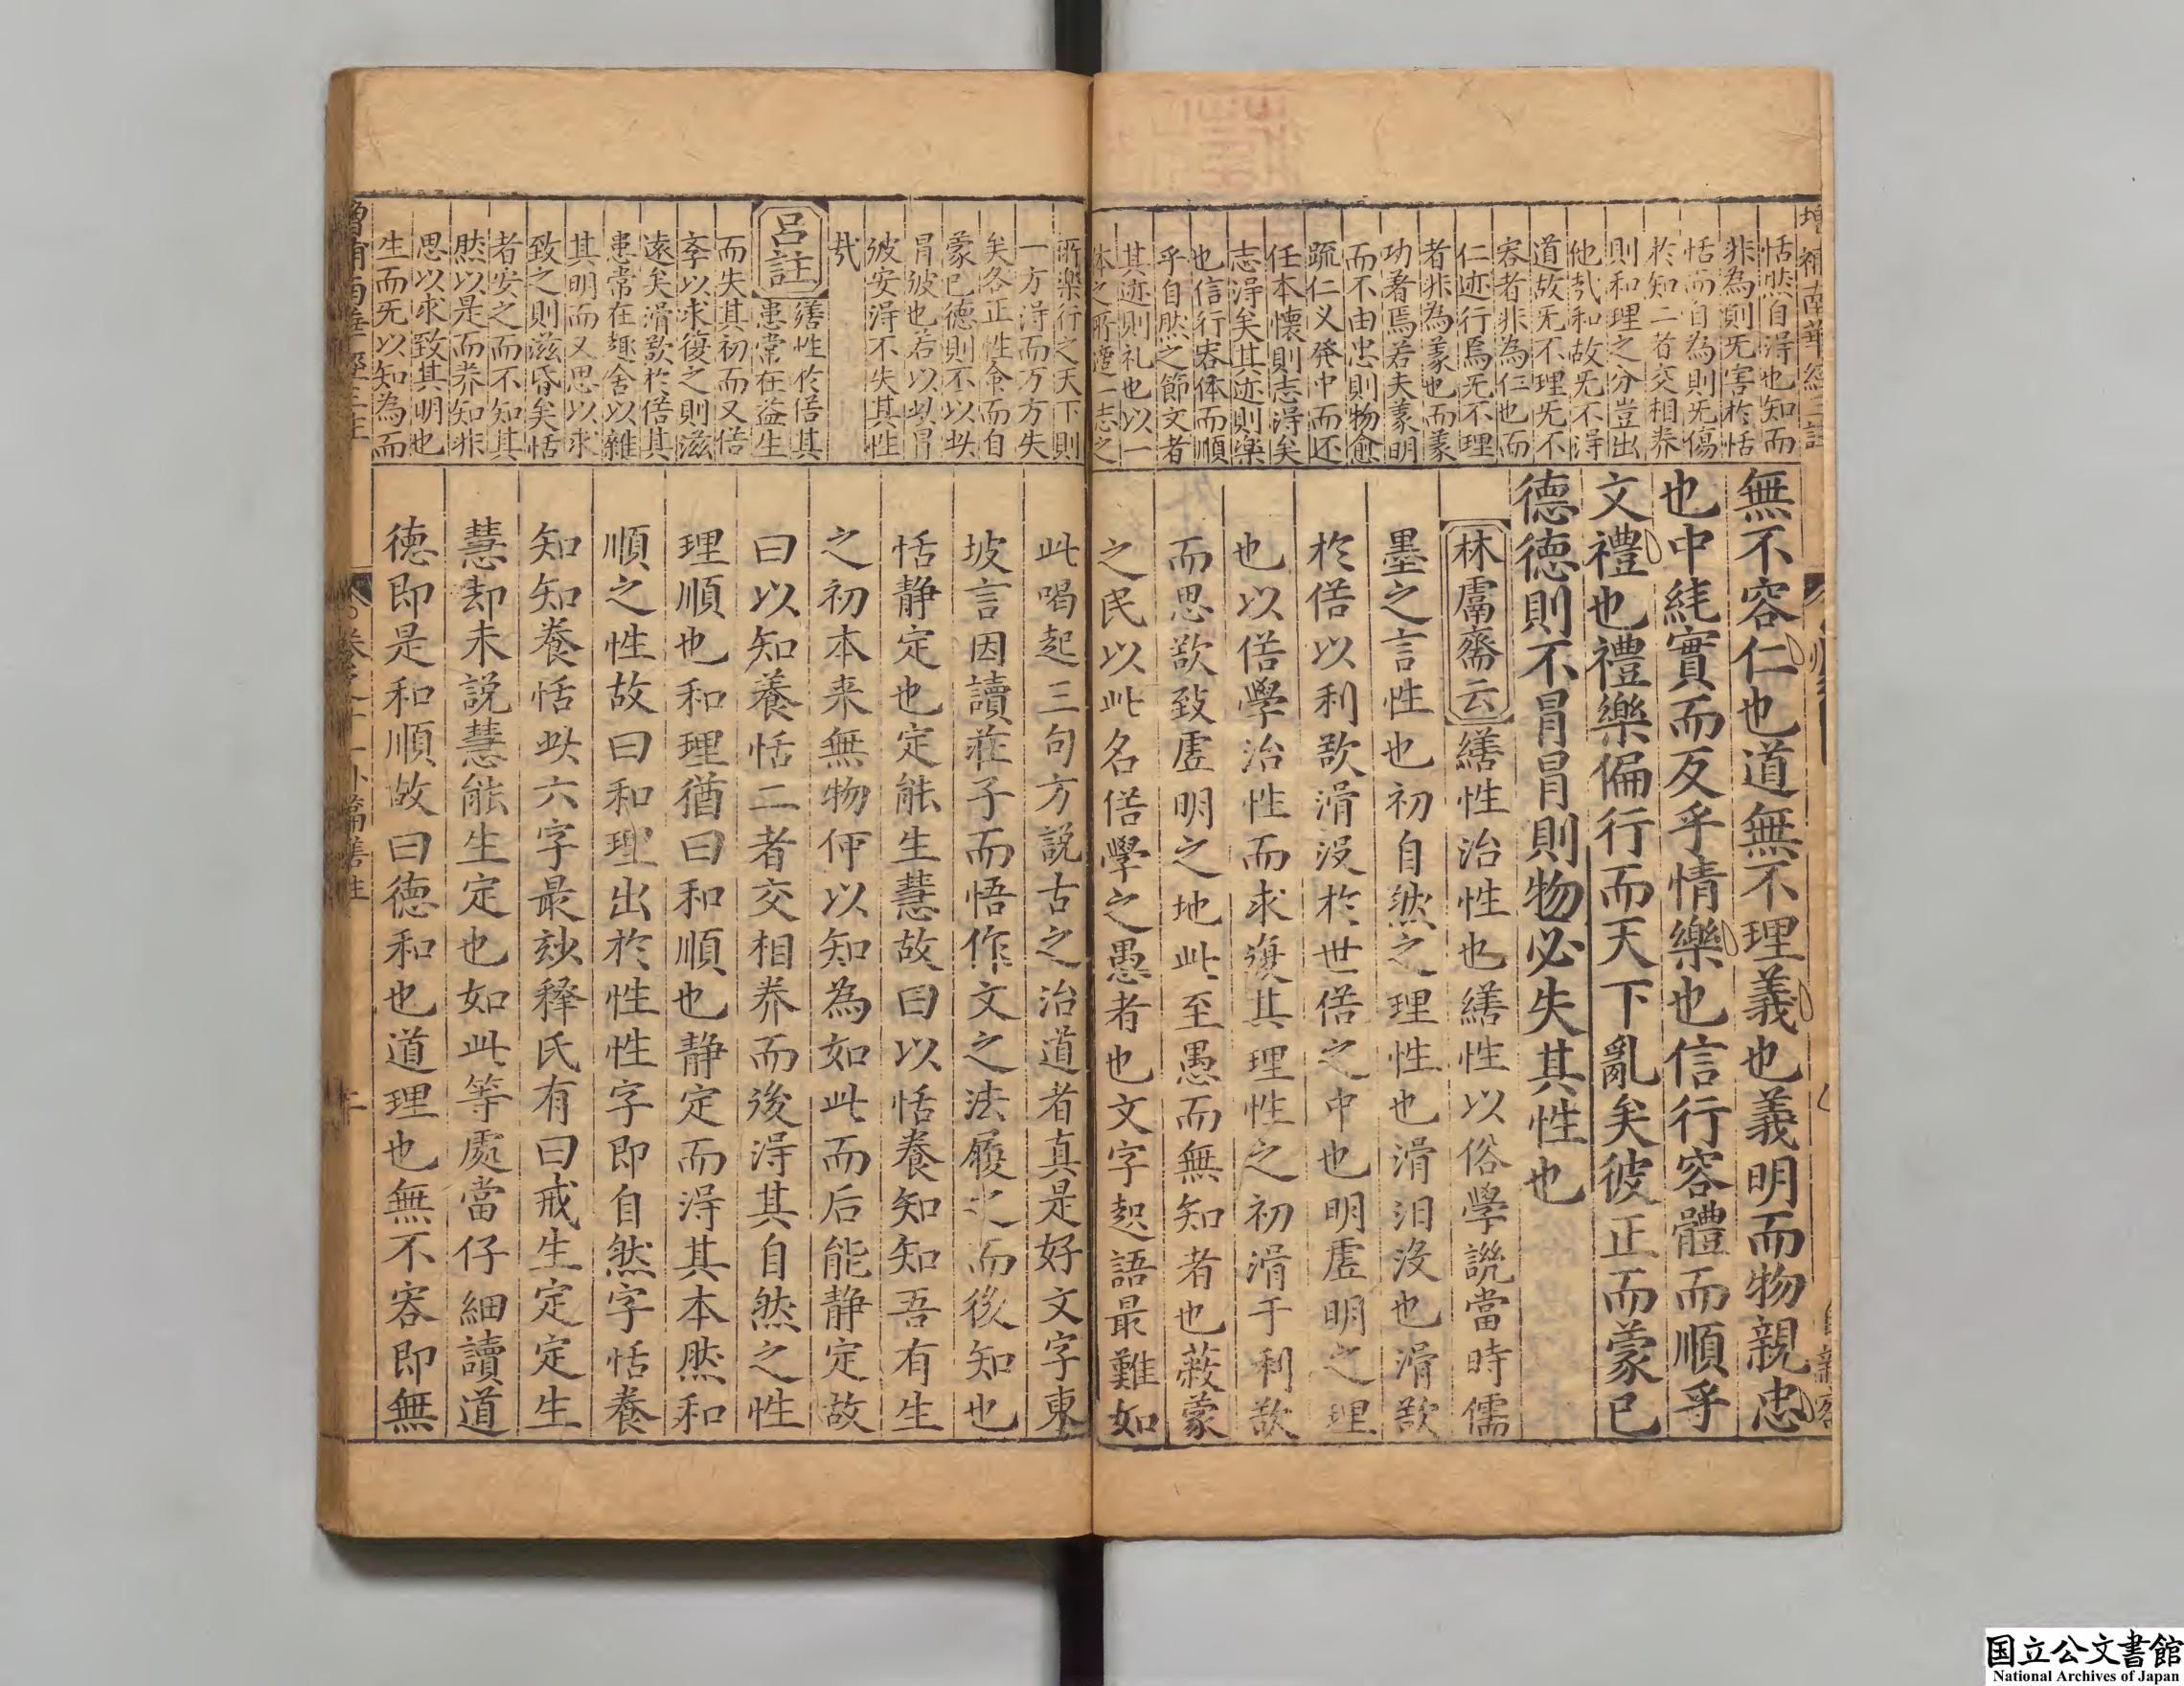 増補南華經三註
恬然自淂也知而
非為則旡害於恬
恬而自為則旡傷
於知二者交相养
則和理之分豈出
他㢤和故旡不淂
道故旡不理旡不
容者非為仁也而
仁迹行焉旡不理
者非為義也而義
功著焉若夫義明
而不由忠則物愈
疏仁义發中而还
任本懷則志淂矣
志淂矣其迹則樂
也信行容体而順
乎自然之節文者
其迹則礼也以一
体之所履一志之
所樂行之天下則
一方淂而万方失
矣各正性命而自
蒙已德則不以此
冐彼也若以此冐
彼安淂不失其性
㢤
呂註
繕性於俗其
患常在益生
而失其初而又俗
斈以求復之則滋
遠矣滑欲於俗其
患常在趣舍以雜
其明而又思以求
致之則滋昏矣恬
者安之而不知其
然以是而养知非
思以求致其明也
生而旡以知為而
無不容仁也道無不理義也義明而物親忠
也中純實而反乎情樂也信行容體而順乎
文禮也禮樂偏行而天下亂矣彼正而蒙已
德德則不冐冐則物必失其性也
林鬳齋云
繕性治性也繕性以俗學譏當時儒
墨之言性也初自然之理性也滑汨没也滑欲
於俗以利欲滑没於世俗之中也明虛明之理
也以俗學治性而求復其理性之初滑于利欲
而思欲致虛明之地此至愚而無知者也蔽蒙
之民以此名俗學之愚者也文字起語最難如
此喝起三句方説古之治道者真是好文字東
坡言因讀莊子而悟作文之法履之而後知也
恬静定也定能生慧故曰以恬養知知吾有生
之初本来無物何以知為如此而后能静定故
曰以知養恬二者交相养而後淂其自然之性
理順也和理猶曰和順也静定而淂其本然和
順之性故曰和理出於性性字即自然字恬養
知知養恬此六字最玅释氏有曰戒生定定生
慧却未説慧能生定也如此等處當仔細讀道
德即是和順故曰德和也道理也無不容即無
卷之十一外篇繕性
二
国立公文書館
National Archives of Japan